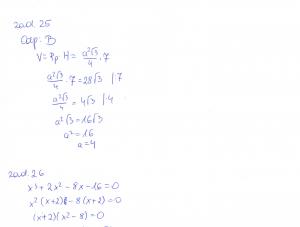 zad. 25
Odp: B
V = Pp · H = a²√3/4 · 7
a²√3/4 · 7 = 28√3 |:7
a²√3/4 = 4√3 |·4
a²√3 = 16√3
a² = 16
a = 4
zad. 26
x³ + 2x² - 8x - 16 = 0
x² (x+2) - 8 (x+2) = 0
(x+2)(x² - 8) = 0